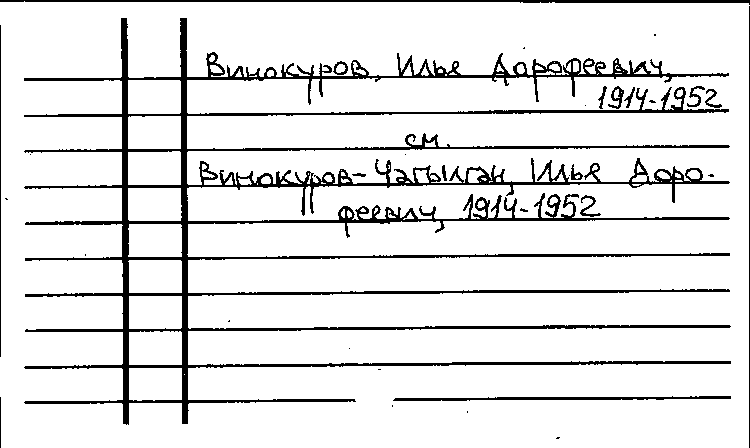 Винокуров, Илья Дорофеевич,
1914-1952
см.
Винокуров-Чагылган, Илья Доро-
феевич, 1914-1952